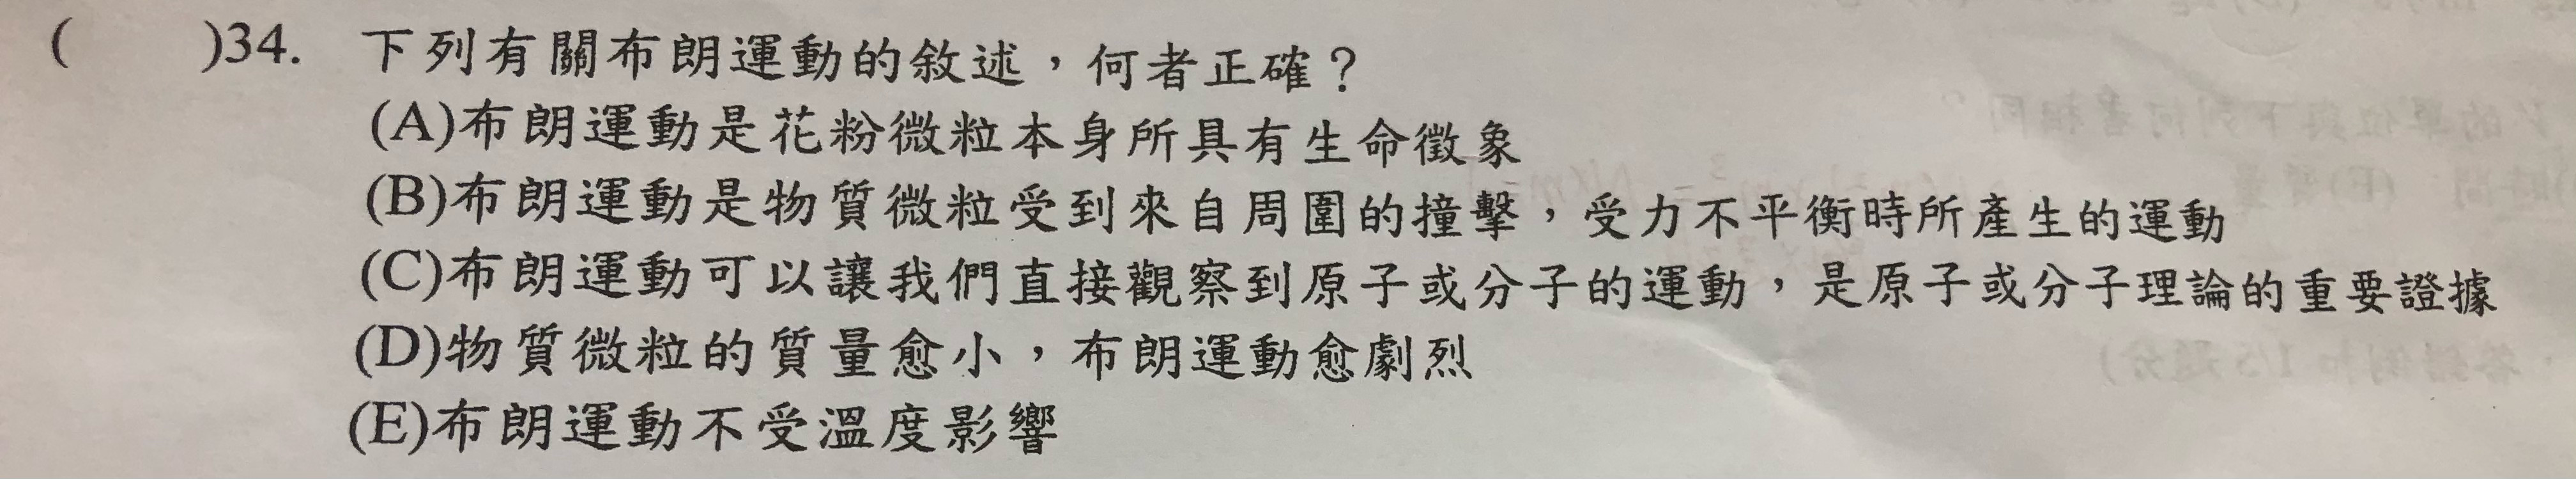 ( )34. 下列有關布朗運動的敘述，何者正確？
(A)布朗運動是花粉微粒本身所具有生命徵象
(B)布朗運動是物質微粒受到來自周圍的撞擊，受力不平衡時所產生的運動
(C)布朗運動可以讓我們直接觀察到原子或分子的運動，是原子或分子理論的重要證據
(D)物質微粒的質量愈小，布朗運動愈劇烈
(E)布朗運動不受溫度影響